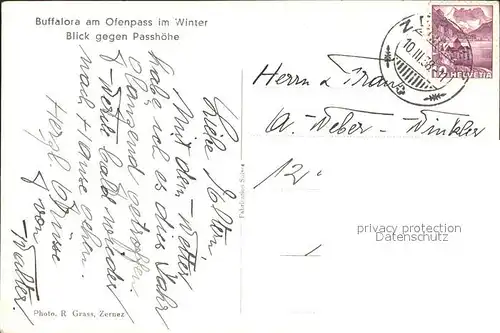 Buffalora am Ofenpass im Winter
Blick gegen Passhöhe
Liebe Eltern,
Mit dem Wetter
habe ich es dies Jahr
glänzend getroffen.
Werde bald wieder
nach Hause gehen.
Herzl. Grüsse
von
Walter.
Photo. R. Grass, Zernez
10.III.38
HELVETIA
Herrn & Frau
A. Weber-Winkler
privacy protection
Datenschutz